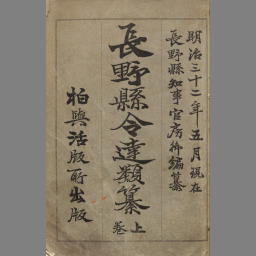 明治三十二年五月現在
長野縣知事官房編纂
長野縣令達類纂
上卷
柏與活版所出版